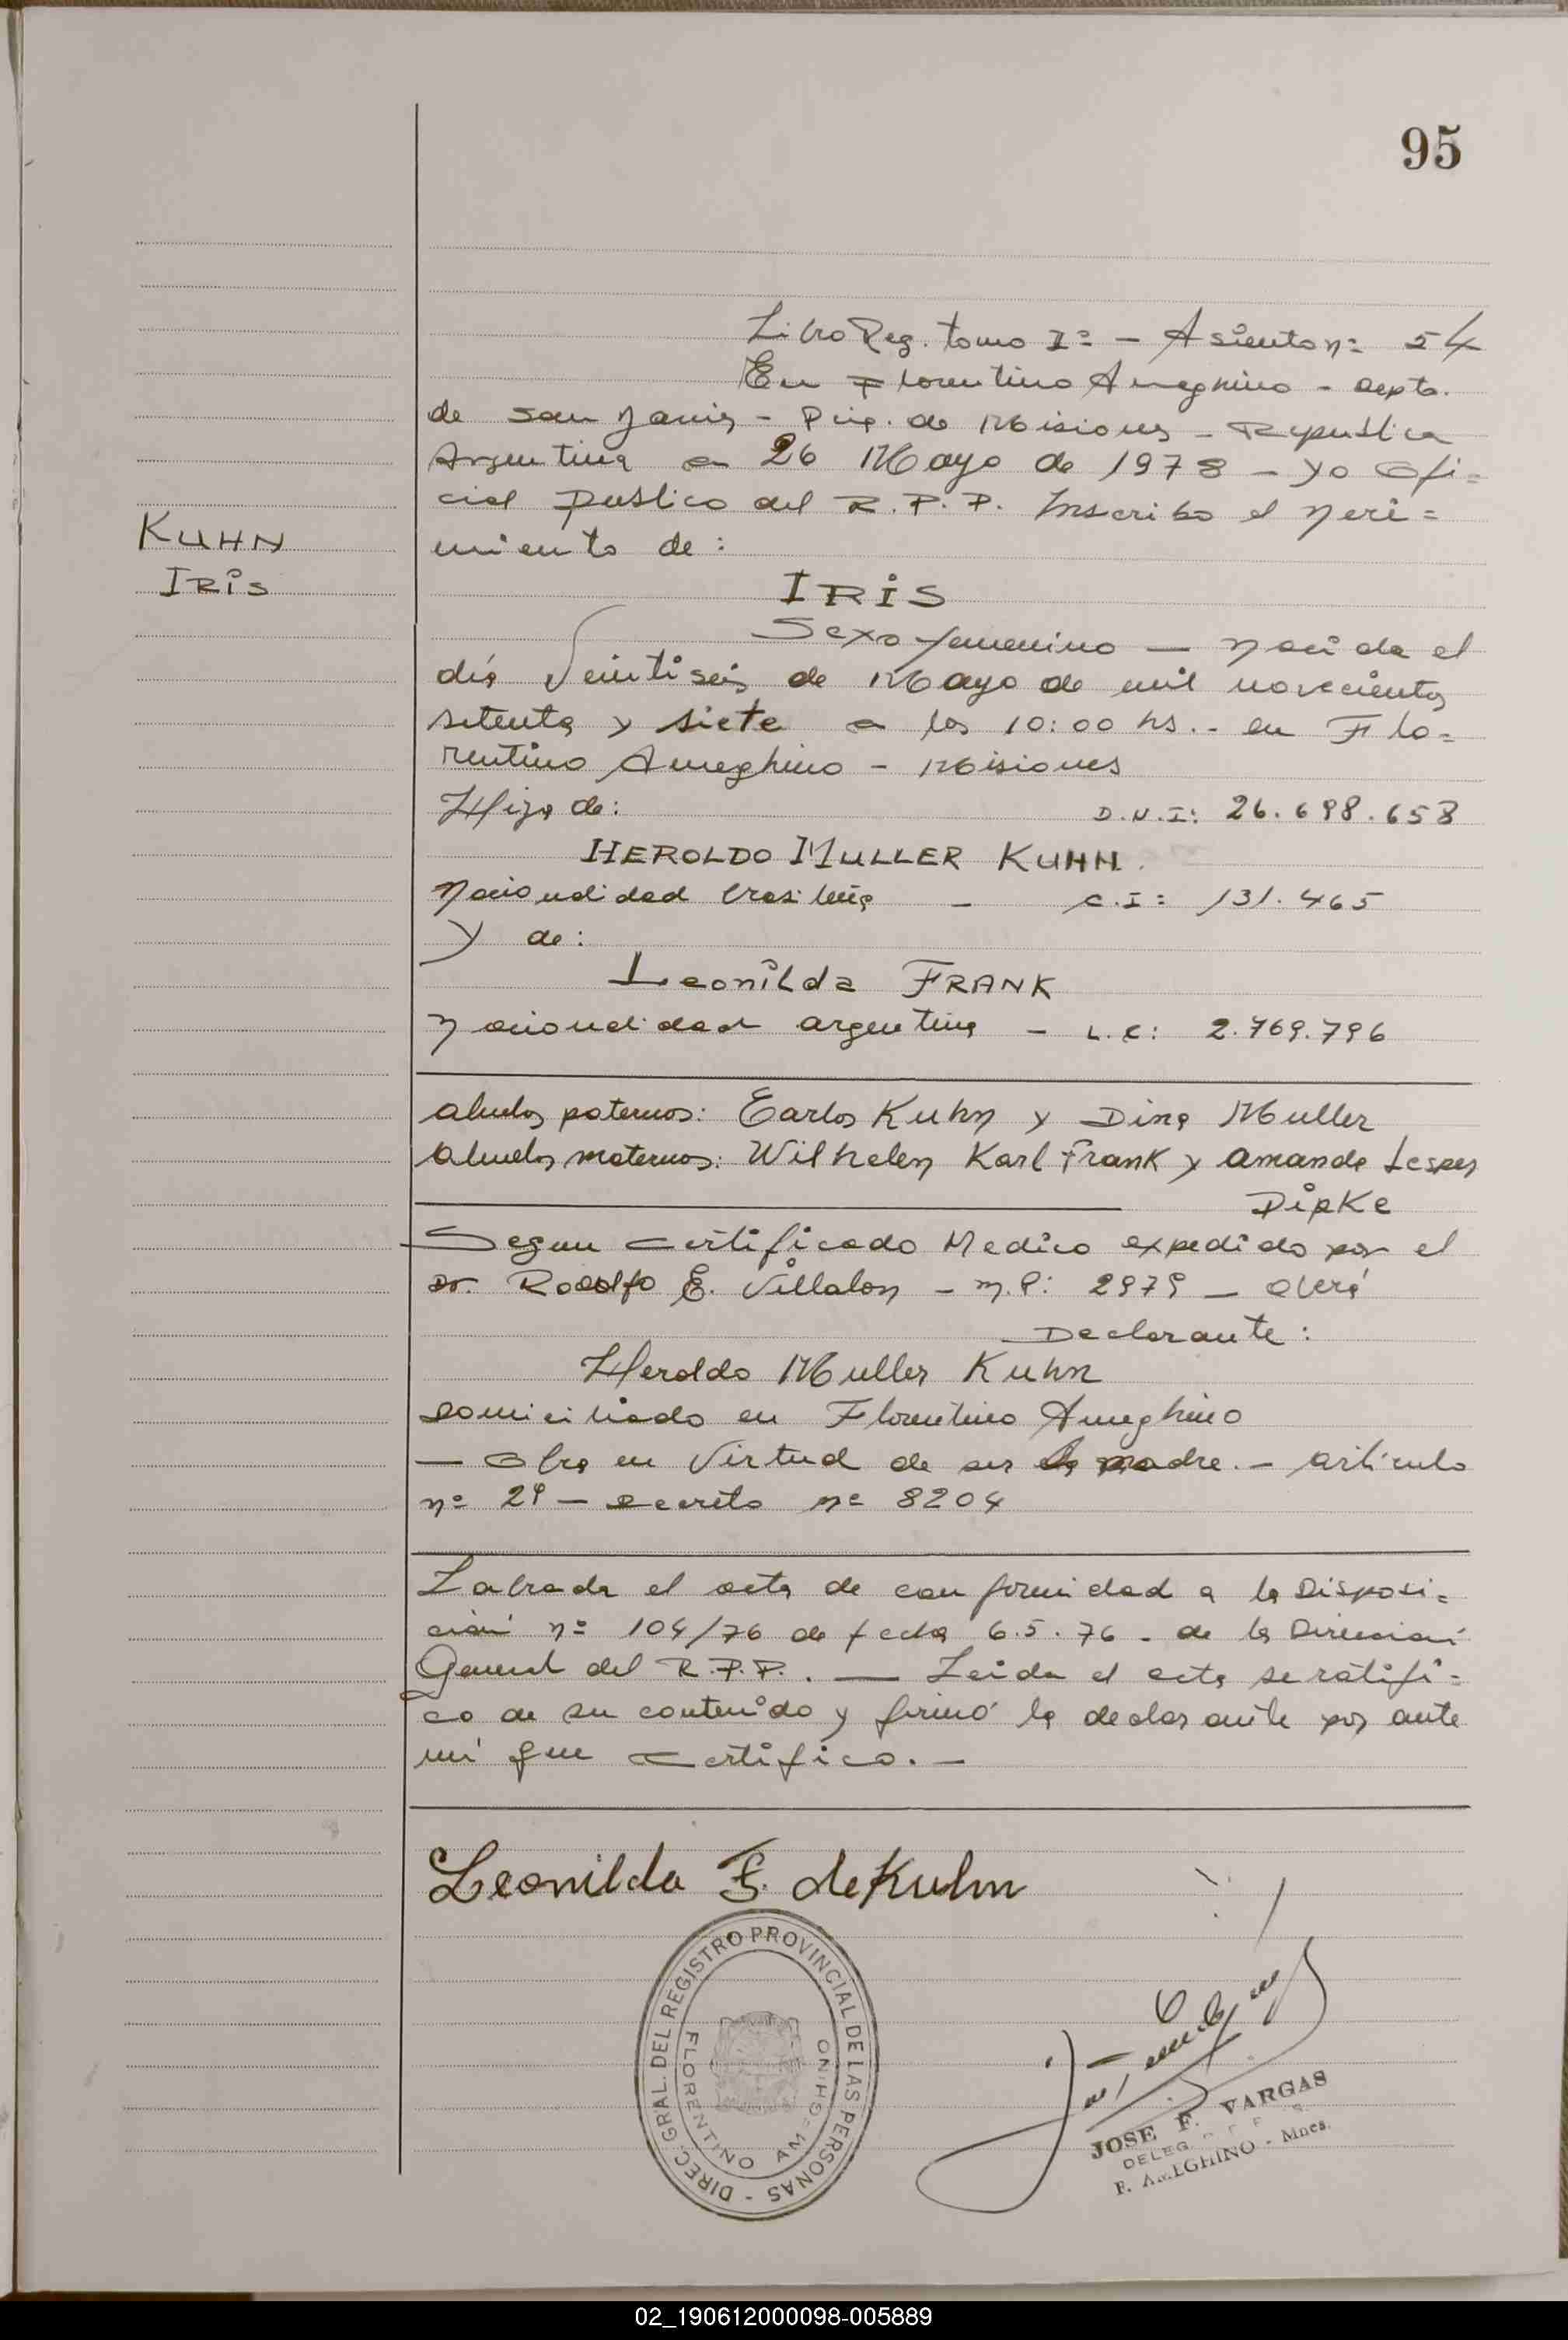 95
Libro Reg. tomo Iº - Asiento nº 54
En Florentino Ameghino - Depto.
de San Javier - Pcia. de Misiones - Republica
Argentina a 26 Mayo de 1978 - yo Ofi=
cial Publico del R.P.P. Inscribo el naci=
miento de:
KUHN
IRIS
IRIS
Sexo femenino — nacida el
día Veintiseis de Mayo de mil novecientos
setenta y siete a las 10:00 hs.- en Flo=
rentino Ameghino - Misiones
Hija de: D.N.I: 26.698.658
HEROLDO MULLER KUHN.
nacionalidad brasileña - C.I: 131.465
y de:
Leonilda FRANK
nacionalidad argentina - L.C: 2.769.796
abuelos paternos: Carlos Kuhn y Dina Muller
abuelos maternos: Wilhelen Karl Frank y Amanda
Dipke
Segun certificado Medico expedido por el
Dr. Rodolfo E. Villalon - M.P: 2979 - Oberá
Declarante:
Heroldo Muller Kuhn
domiciliado en Florentino Ameghino
- Obra en Virtud de ser la madre.- articulo
nº 29 - decreto nº 8204
Labrada el acta de conformidad a la Disposi=
ción nº 104/76 de fecha 6.5.76 - de la Dirección
General del R.P.P. . — Leida el acta se ratifi=
co de su contenido y firmó la declarante por ante
mí que certifico.-
Leonilda F. de Kuhn
DIREC. GRAL. DEL REGISTRO PROVINCIAL DE LAS PERSONAS -
FLORENTINO AMEGHINO
JOSE F. VARGAS
F. AMEGHINO - Mnes.
02_190612000098-005889